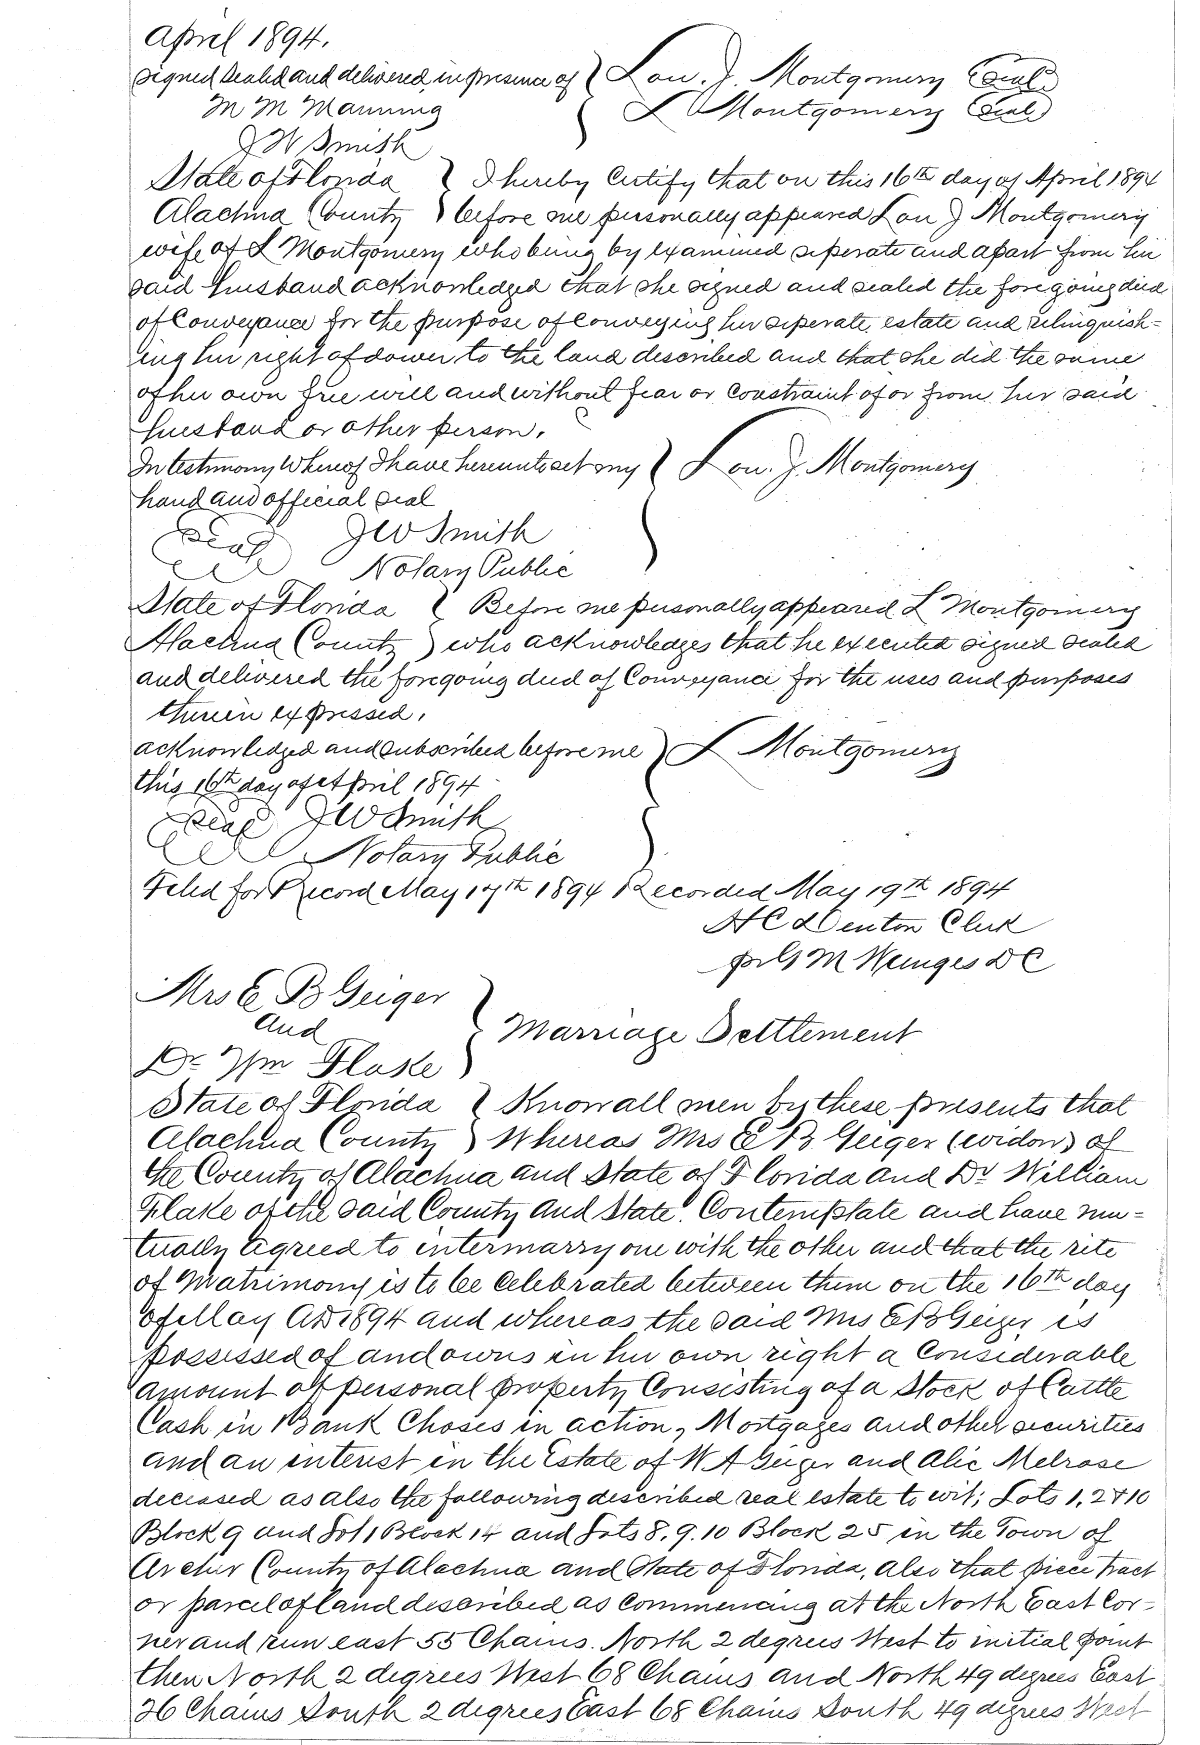 April 1894.
signed sealed and delivered in presence of } Lou. J. Montgomery (Seal)
M M Manning } L Montgomery (Seal)
J W Smith
State of Florida } I hereby Certify that on this 16th day of April 1894
Alachua County } before me personally appeared Lou J Montgomery
wife of L Montgomery who being by examined seperate and apart from her
said husband acknowledged that she signed and sealed the foregoing deed
of Conveyance for the purpose of Conveying her seperate estate and relinquish=
ing her right of dower to the land described and that she did the same
of her own free will and without fear or Constraint of or from her said
husband or other person.
In testimony Whereof I have hereunto set my } Lou. J. Montgomery
hand and official seal
Seal J W Smith
Notary Public
State of Florida } Before me personally appeared L Montgomery
Alachua County } who acknowledges that he executed signed sealed
and delivered the foregoing deed of Conveyance for the uses and purposes
therein expressed.
acknowledged and subscribed before me } L Montgomery
this 16th day of April 1894
Seal J W Smith
Notary Public
Filed for Record May 17th 1894 Recorded May 19th 1894
H C Denton Clerk
pr G M Weinges D C
Mrs E B Geiger
and } Marriage Settlement
Dr Wm Flake
State of Florida } Know all men by these presents that
Alachua County } Whereas Mrs E B Geiger (widow) of
the County of Alachua and State of Florida and Dr William
Flake of the said County and State. Contemplate and have mu=
tually agreed to intermarry one with the other and that the rite
of Matrimony is to be Celebrated between them on the 16th day
of May AD 1894 and whereas the said Mrs E B Geiger is
possessed of and owns in her own right a Considerable
amount of personal property Consisting of a Stock of Cattle
Cash in Bank Choses in action, Mortgages and other securities
and an interest in the Estate of W A Geiger and Alic Melrose
deceased as also the following described real estate to wit; Lots 1, 2 & 10
Block 9 and Lot 1 Block 14 and Lots 8. 9. 10 Block 25 in the Town of
Archer County of Alachua and State of Florida, also that piece tract
or parcel of land described as Commencing at the North East Cor=
ner and run east 55 Chains. North 2 degrees West to initial point
then North 2 degrees West 68 Chains and North 49 degrees East
36 Chains South 2 degrees East 68 Chains South 49 degrees West